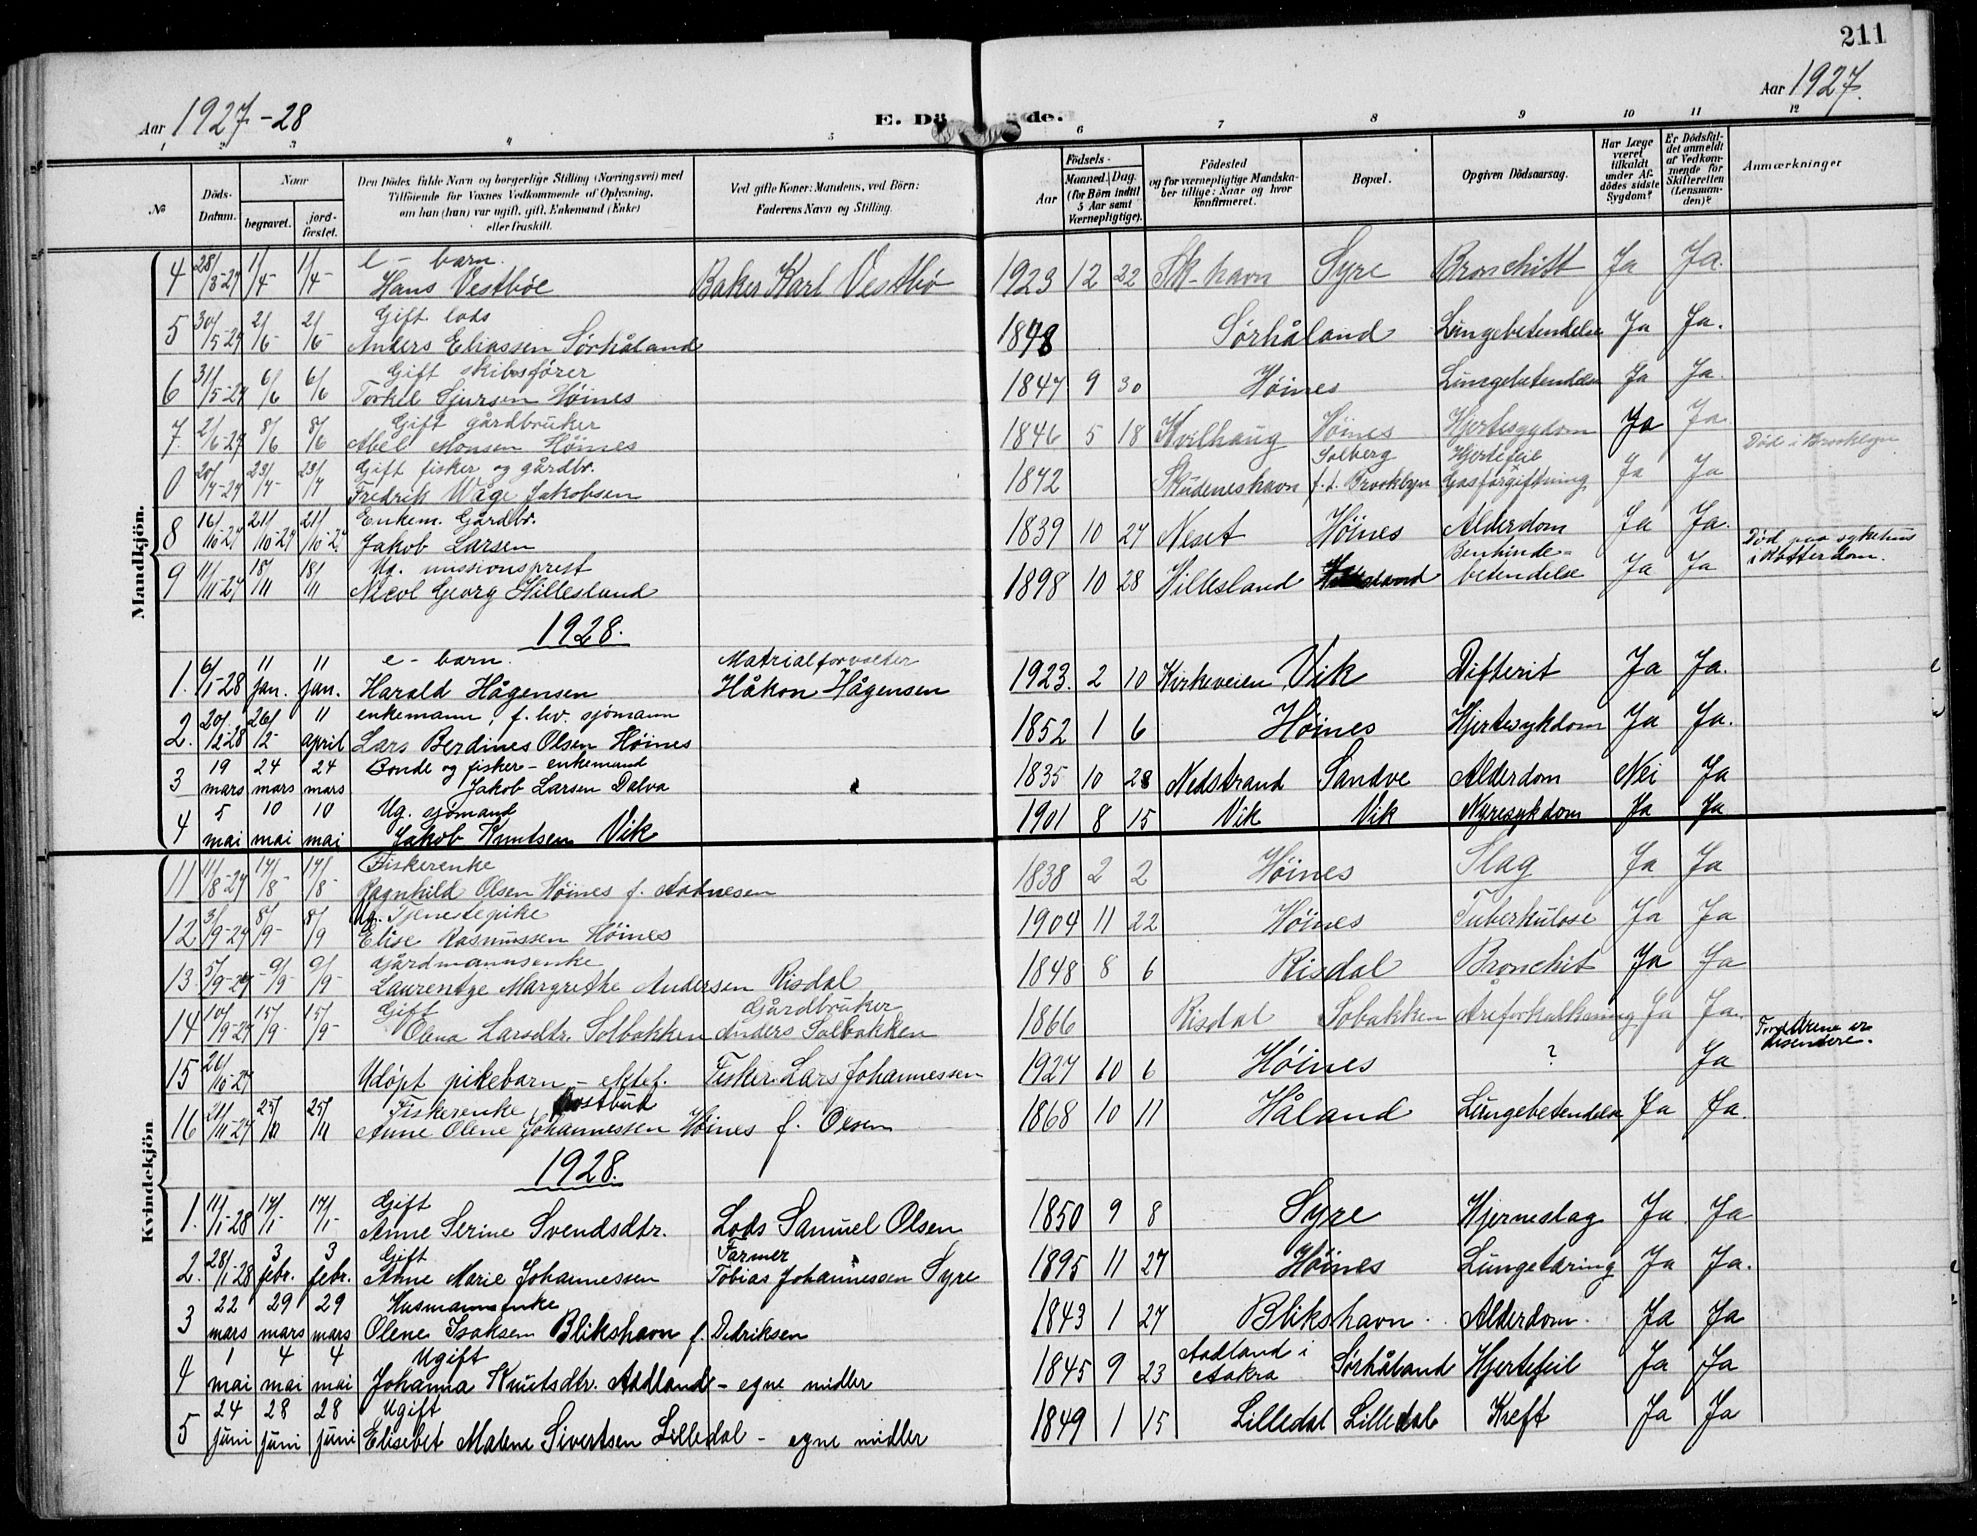 211
Aar 1927-28
E. Dö de.
Aar 1927.
1 2 3 4 5 6 7 8 9 10 11 12
No
Döds-Datum.
Naar
begravet.
jord-fæstet.
Den Dödes fulde Navn og borgerlige Stilling (Næringsvei) med
Tilföiende for Voxnes Vedkommende af Oplysning,
om han (hun) var ugift, gift, Enkemand (Enke)
eller fraskilt.
Ved gifte Koner: Mandens, ved Börn:
Faderens Navn og Stilling.
Födsels-
Aar
Maaned. Dag.
(for Börn indtil
5 Aar samt
Værnepligtige).
Födested
og for værnepligtige Mandska-
ber tillige: Naar og hvor
konfirmeret.
Bopæl.
Opgiven Dödsaarsag.
Har Læge
været
tilkaldt
under Af-
dödes sidste
Sygdom?
Er Dödsfal-
det anmeldt
af Vedkom-
mende for
Skifteretten
(Lensman-
den)?
Anmærkninger
Mandkjön.
4 28/3-27 1/4- 1/4- e - barn. Hans Vestböe Baker Karl Vestbö 1923 12 22 Sk-havn Syre Bronchitt Ja Ja.
5 30/5-27 2/6- 2/6- Gift. lods Anders Eliassen Sørhåland 1848 Sørhåland Lungebetendelse Ja Ja.
6 31/5-27 6/6 6/6 Gift skibsfører Torkel Sjursen Høines 1847 9 30 Høines Lungebetendelse Ja Ja.
7. 2/6-27 8/6 8/6 Gift gårdbruker Abel Monsen Höines 1846 5 18 Kvilhaug Höines Hjertesygdom Ja Ja
0 20/7-27 23/7- 23/7 Gift fisker og gårdbr. Fredrik Wåge Jakobsen 1842 Skudeneshavn Solberg f.t. Brooklyn Hjertefeil Gasforgiftning Ja Ja Död i Brooklyn
8 16/10-27 21/10-27 21/10-27 Enkem. Gårdbr. Jakob Larsen 1839 10 27 Neset Höines Alderdom Ja Ja.
9 11/11-27 18/11 18/11 Ug. missionsprest Nicol Georg Hillesland 1898 10 28 Hillesland Benhinde-betendelse Ja Ja Död paa sykehus i Rotterdam.
1928.
1. 6/1-28 11 jan. 11 jan. e - barn. Harald Hågensen Matrialforvalter Håkon Hågensen 1923. 2 10 Kirkeveien, Vik Difterit Ja Ja.
2. 20/12-28 26/12- 11 april enkemann, f. hv. sjömann Lars Berdines Olsen Höines 1852 1 6 Höines Hjertesykdom Ja Ja.
3 19 mars 24 mars 24 mars Bonde og fisker - enkemand Jakob Larsen Dalva 1835 10 28 Nedstrand Sandve Alderdom Nei Ja
4 5 mai 10 mai 10 mai Ug. sjömand Jakob Knutsen Vik 1901 8 15 Vik Vik Nyresykdom Ja Ja
Kvindekjön
11 11/8-27 17/8- 17/8- Fiskerenke Ragnhild Olsen Höines f. Aadnesen 1838 2 2 Höines Slag Ja Ja
12 3/9-27 8/9- 8/9 Ug. Tjenestepike Elise Rasmussen Höines 1904 11 22 Höines Tuberkulose Ja Ja
13 5/9-27 9/9- 9/9- gårdmannsenke Laurentze Margrethe Andersen Risdal 1848 8 6 Risdal Bronchit Ja Ja
14 10/9-27 15/9- 15/9- Gift Olena Larsdtr. Solbakken Gårdbruker Anders Solbakken 1866 Risdal Sobakken Åreforkalkning Ja Ja.
15 21/10-27 Udöpt pikebarn - ektef. Fisker Lars Johannessen 1927 10 6 Höines ? Ja Foreldrene er disentere.
16 21/11-27 25/11 25/11 Fiskerenke, postbud Anne Olene Johannessen Höines f. Olsen 1868 10 11 Håland Lungebetendelse Ja Ja.
1928.
1. 11/1-28 17/1- 17/1- Gift Anne Serine Svendsdtr. Lods Samuel Olsen 1850 9 8 Syre Hjerneslag Ja Ja
2. 28/1-28 3 febr. 3 febr. Gift Anne Marie Johannessen Farmer Tobias Johannessen Syre 1895 11 27 Höines Lungetæring Ja Ja.
3 22 mars 29 mars 29 mars Husmannsenke Olene Isaksen Blikshavn f. Didriksen 1843 1 27 Blikshavn Alderdom. Ja Ja
4 1 mai 4 mai 4 mai Ugift Johanna Knutsdtr. Aadland - egne midler 1845 9 23 Aadland i Aakra Sörhåland Hjertefeil Ja Ja
5 24 juni 28 juni 28 juni Ugift Elisebet Malene Sivertsen Lilledal - egne midler 1849 1 15 Lilledal Lilledal Kreft Ja Ja